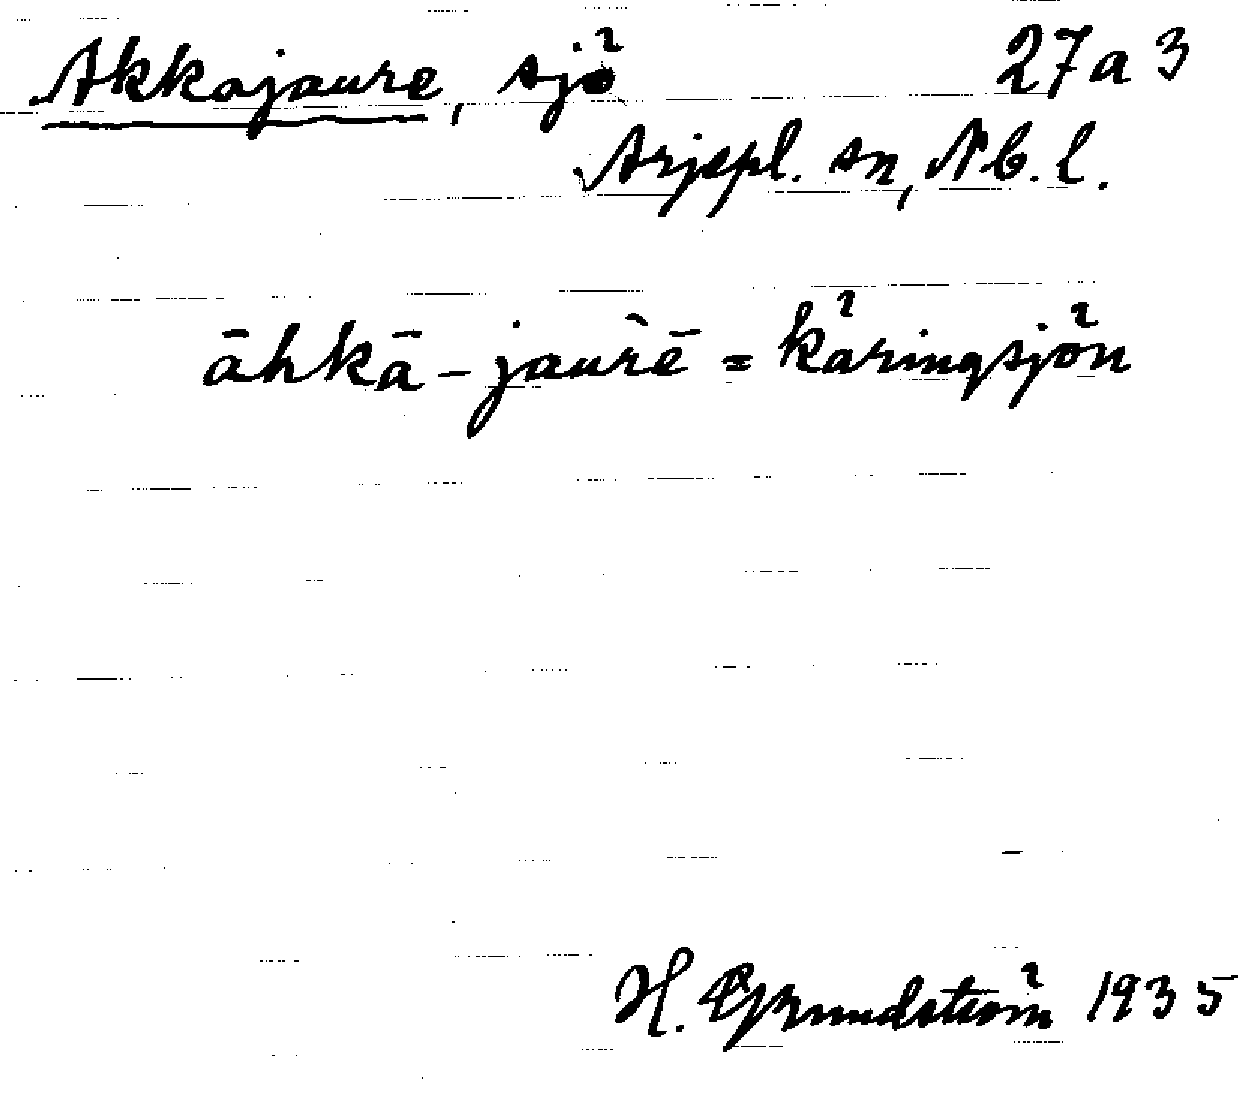 Akkajaure, sjö 27a3
Arjspl. sn, Nb. l.
āhkā-jaurē = käringsjön
H. Grundström 1935